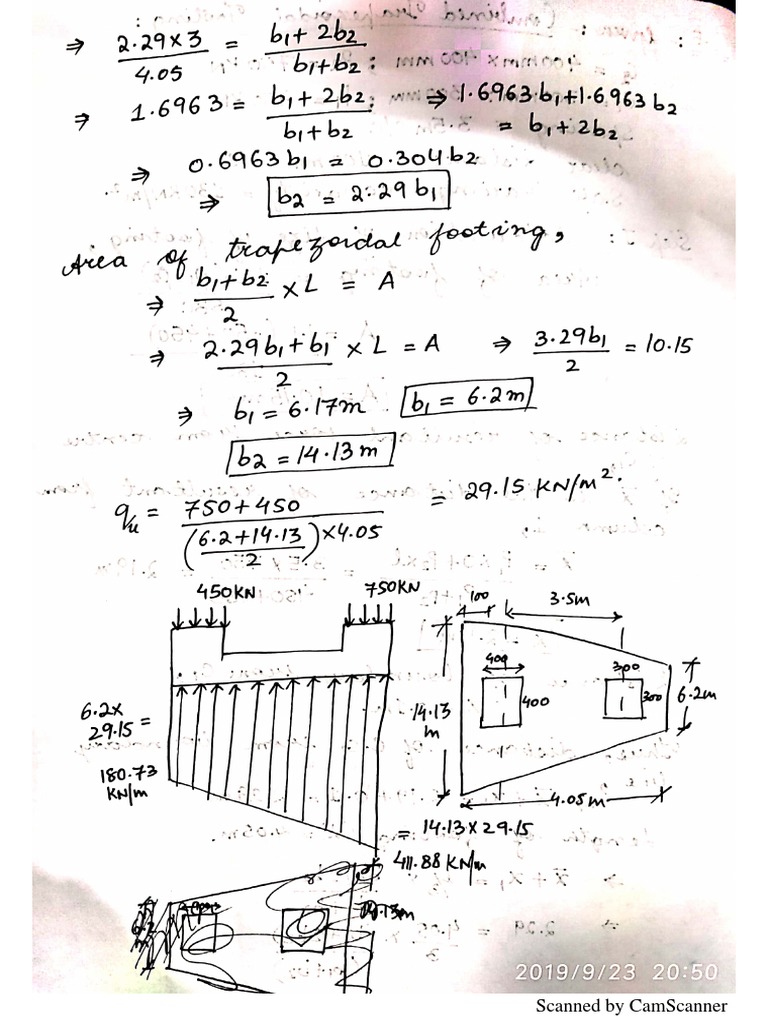 ⇒ 2.29×3/4.05 = b1+2b2/b1+b2
⇒ 1.6963 = b1+2b2/b1+b2 ⇒ 1.6963b1+1.6963b2
= b1+2b2
⇒ 0.6963b1 = 0.304b2
⇒ b2 = 2.29b1
Area of trapezoidal footing,
⇒ b1+b2/2 × L = A
⇒ 2.29b1+b1/2 × L = A ⇒ 3.29b1/2 = 10.15
⇒ b1 = 6.17m b1 = 6.2m
b2 = 14.13m
qu = 750+450/(6.2+14.13/2)×4.05 = 29.15 KN/m².
450KN 750KN
100 3.5m
400 300
400 300
6.2×
29.15 =
180.73
KN/m
14.13
m
6.2m
4.05m
= 14.13×29.15
411.88 KN/m
2019/9/23 20:50
Scanned by CamScanner